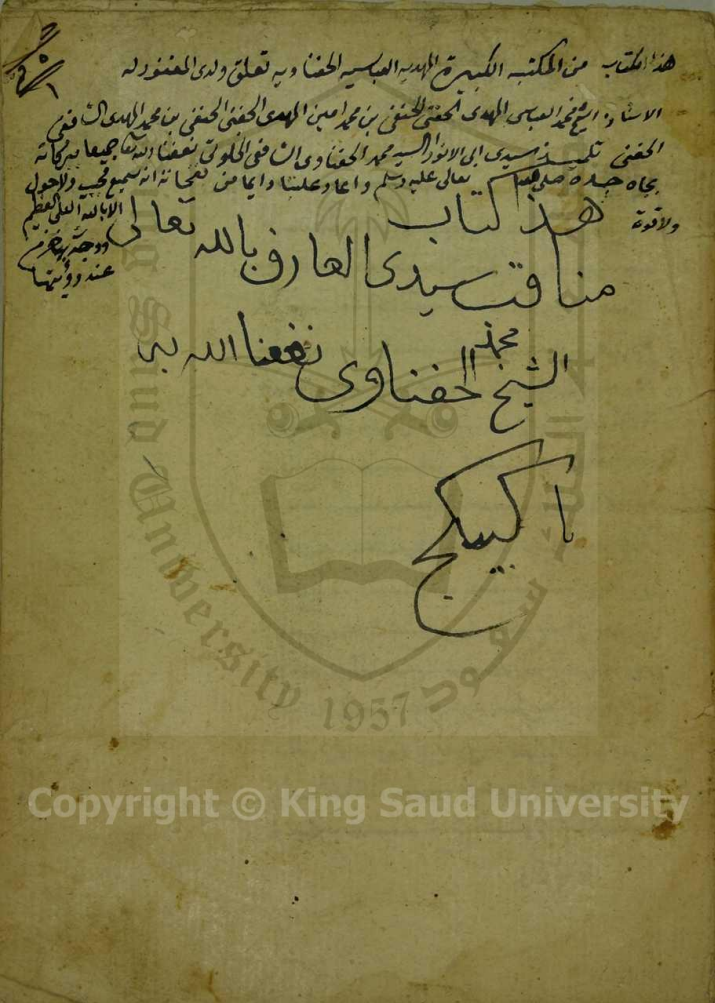 هذا الكتاب من المكتبه الكبيرة المهديه العباسيه الحفناويه تعلق ولدى المغفور له
الاستاذ الشيخ محمد العباسى المهدى الحفنى الحنفى بن محمد امين المهدى الحفنى الحنفى بن محمد المهدى الشافعى
الحفنى تلميذ سيدى ابى الانوار السيد محمد الحفناوى الشافعى الخلوتى نفعنا الله تعا جميعا ببركاته
بجاه جده صلى الله تعالى عليه وسلم واعاد علينا دايما من نفحاته انه سميع مجيب ولا حول
ولا قوة الا بالله العلى العظيم
هذا كتاب
مناقب سيدى العارف بالله تعالى
الشيخ محمد الحفناوى نفعنا الله به
يا كبيكج
King Saud University
1957
جامعة الملك سعود
Copyright © King Saud University